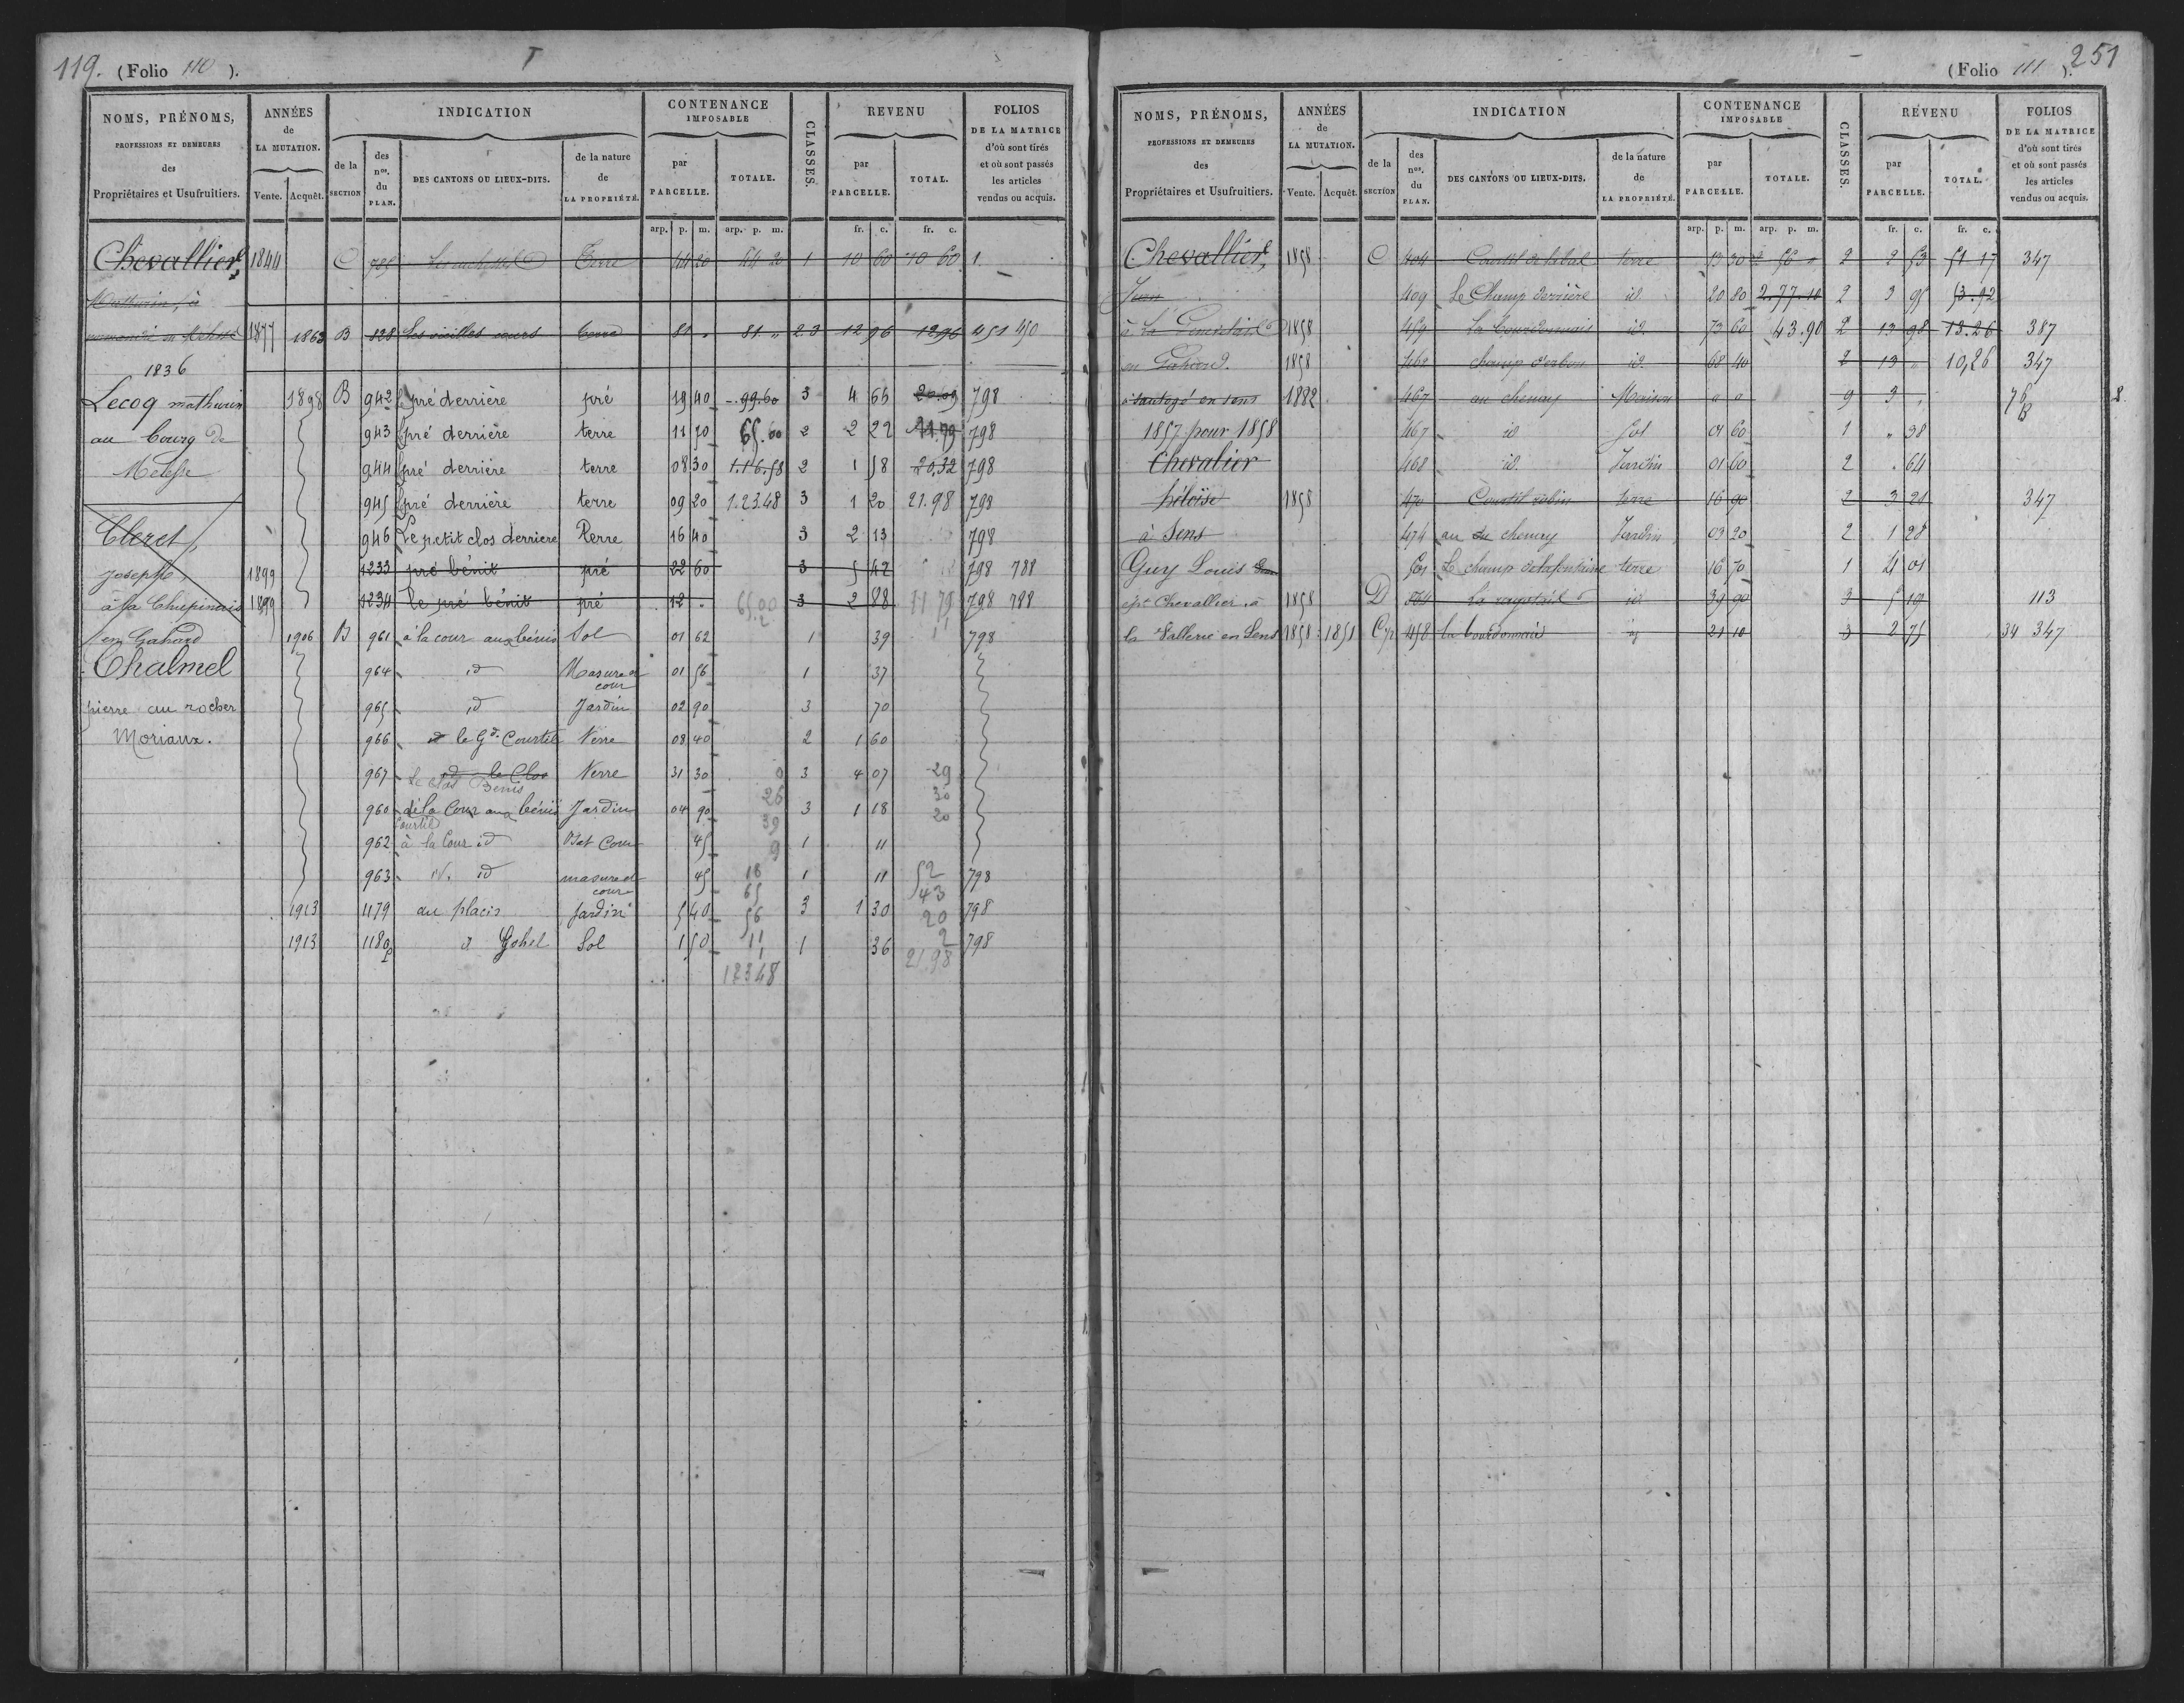 119. (Folio 110 ).
T
NOMS, PRÉNOMS, PROFESSIONS ET DEMEURES des Propriétaires et Usufruitiers. ANNÉES de LA MUTATION. Vente. Acquêt. INDICATION de la SECTION des nos. du PLAN. DES CANTONS OU LIEUX-DITS. de la nature de LA PROPRIÉTÉ. CONTENANCE IMPOSABLE par PARCELLE. TOTALE. CLASSES. REVENU par PARCELLE. TOTAL. FOLIOS DE LA MATRICE d'où sont tirés et où sont passés les articles vendus ou acquis.
arp. p. m. arp. p. m. fr. c. fr. c.
Chevallier, 1844 C Terre 44 20 44 20 1 10 60 10 60 1
Mathurin, à
1877 1863 B 828 Les vieilles cours terre 81 " 81 " 2.3 12 96 12 96 451 450
1836
Lecoq mathurin 1898 B 942 le pré derrière pré 19 40 99.60 3 4 66 20.09 798
au bourg de 943 le pré derrière terre 11 70 65.60 2 2 22 11.79 798
Melesse 944 le pré derrière terre 08 30 1.16.58 2 1 58 20.32 798
945 le pré derrière terre 09 20 1.23.48 3 1 20 21.98 798
Cleret, 946 Le petit clos derriere Terre 16 40 3 2 13 798
Joseph, 1899 1233 pré bénit pré 22 60 3 5 42 798 788
à la Chupinais 1899 1234 le pré bénit pré 12 " 65.00 3 2 88 11 79 798 788
en Gahard 1906 B 961 à la cour aux bénis Sol 01 62 1 39 798
Chalmel 964 id Masure et cour 01 56 1 37
pierre au rocher 965 id Jardin 02 90 3 70
Moriaux. 966 le Gd. Courtil Terre 08 40 2 1 60
967 id le Clos Le clos Benis Terre 31 30 0 3 4 07 29
960 de la Cour aux bénis Jardin 04 90 26 3 1 18 30
Courtil 39 20
962 à la Cour id Bat Cour 45 9 1 11
963 id. id masure et cour 45 18 1 11 52 798
65 43
1913 1179 au placis Jardin 5 40 56 3 1 30 20 798
1913 1180p à Gohel Sol 1 50 11 1 36 2 798
12348 21.98
(Folio 111 ). 251
NOMS, PRÉNOMS, PROFESSIONS ET DEMEURES des Propriétaires et Usufruitiers. ANNÉES de LA MUTATION. Vente. Acquêt. INDICATION de la SECTION des nos. du PLAN. DES CANTONS OU LIEUX-DITS. de la nature de LA PROPRIÉTÉ. CONTENANCE IMPOSABLE par PARCELLE. TOTALE. CLASSES. REVENU par PARCELLE. TOTAL. FOLIOS DE LA MATRICE d'où sont tirés et où sont passés les articles vendus ou acquis.
arp. p. m. arp. p. m. fr. c. fr. c.
Chevallier, 1858 C 404 terre 13 30 2 56 2 2 53 51 17 347
Jean 409 Le Champ derrière id 20 80 2.77.10 2 3 95 53.92
1858 459 La bourdonnais id 73 60 43.90 2 13 98 13.26 387
en Gahard. 1858 462 id 68 40 2 13 " 10,26 347
en sens 1882 467 au chenay Maison " " 9 3 " 76 8
1857 pour 1858 467 id Sol 01 60 1 " 38
Chevalier 468 id. Jardin 01 60 2 " 64
héloïse 1858 470 Courtil robin terre 16 90 2 3 21 347
à Sens 474 au chenay Jardin 03 20 2 1 28
Guy Louis 501 Le champ de la fontaine terre 16 70 1 4 01
Chevallier, à 1858 D id 34 90 3 5 19 113
la Vallerie en Sens 1858 1851 Cp 458 la bourdonnais id 21 10 3 2 75 34 347